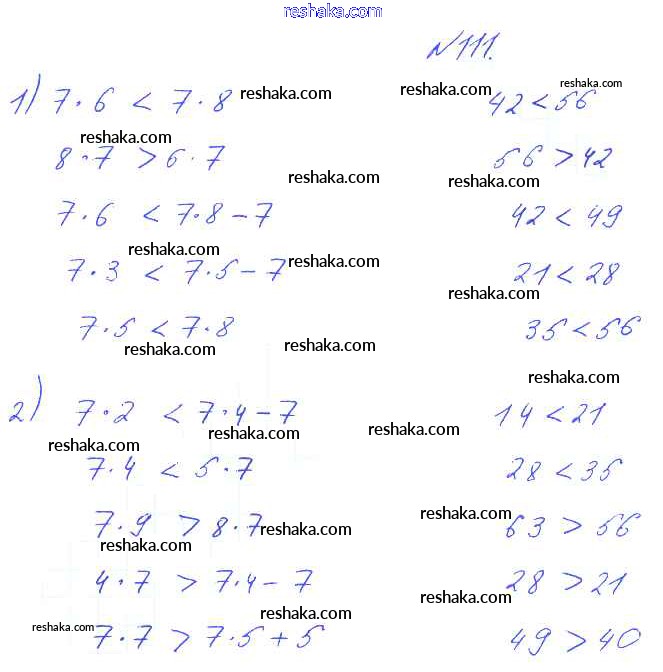 reshaka.com
№111.
1) 7·6 < 7·8 reshaka.com reshaka.com 42 < 56 reshaka.com
reshaka.com
8·7 > 6·7 reshaka.com 56 > 42 reshaka.com
7·6 < 7·8-7 42 < 49
reshaka.com
7·3 < 7·5-7 reshaka.com 21 < 28
reshaka.com
7·5 < 7·8 35 < 56
reshaka.com reshaka.com
reshaka.com
2) 7·2 < 7·4-7 14 < 21
reshaka.com reshaka.com reshaka.com
7·4 < 5·7 28 < 35
7·9 > 8·7 reshaka.com reshaka.com 63 > 56
reshaka.com
4·7 > 7·4-7 28 > 21
reshaka.com reshaka.com
reshaka.com 7·7 > 7·5+5 49 > 40